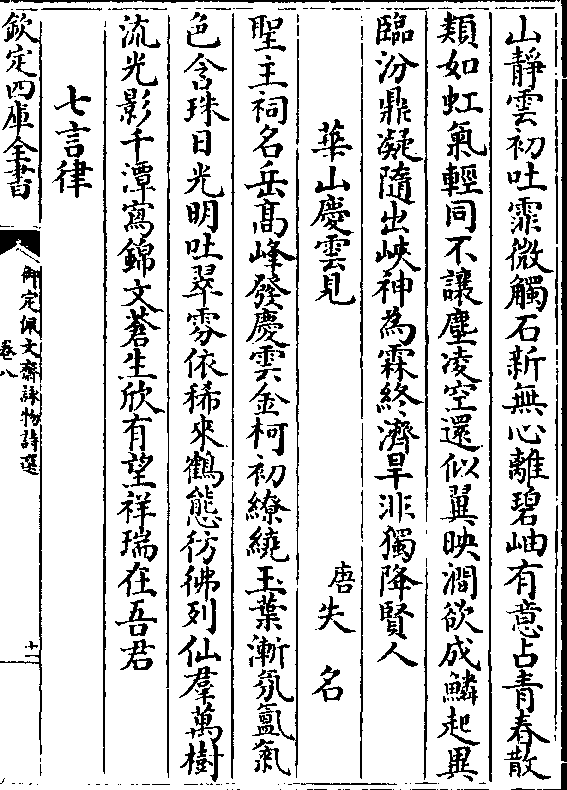 山靜雲初吐霏微觸石新無心離碧岫有意占青春散
類如虹氣輕同不讓塵凌空還似翼映澗欲成鱗起異
臨汾鼎凝隨出峽神為霖終濟旱非獨降賢人
華山慶雲見
唐失名
聖主祠名岳高峰發慶雲金柯初繚繞玉葉漸氛氳氣
色含珠日光明吐翠雰依稀來鶴態彷彿列仙羣萬樹
流光影千潭寫錦文蒼生欣有望祥瑞在吾君
七言律
欽定四庫全書
御定佩文齋詠物詩選
卷八
十一